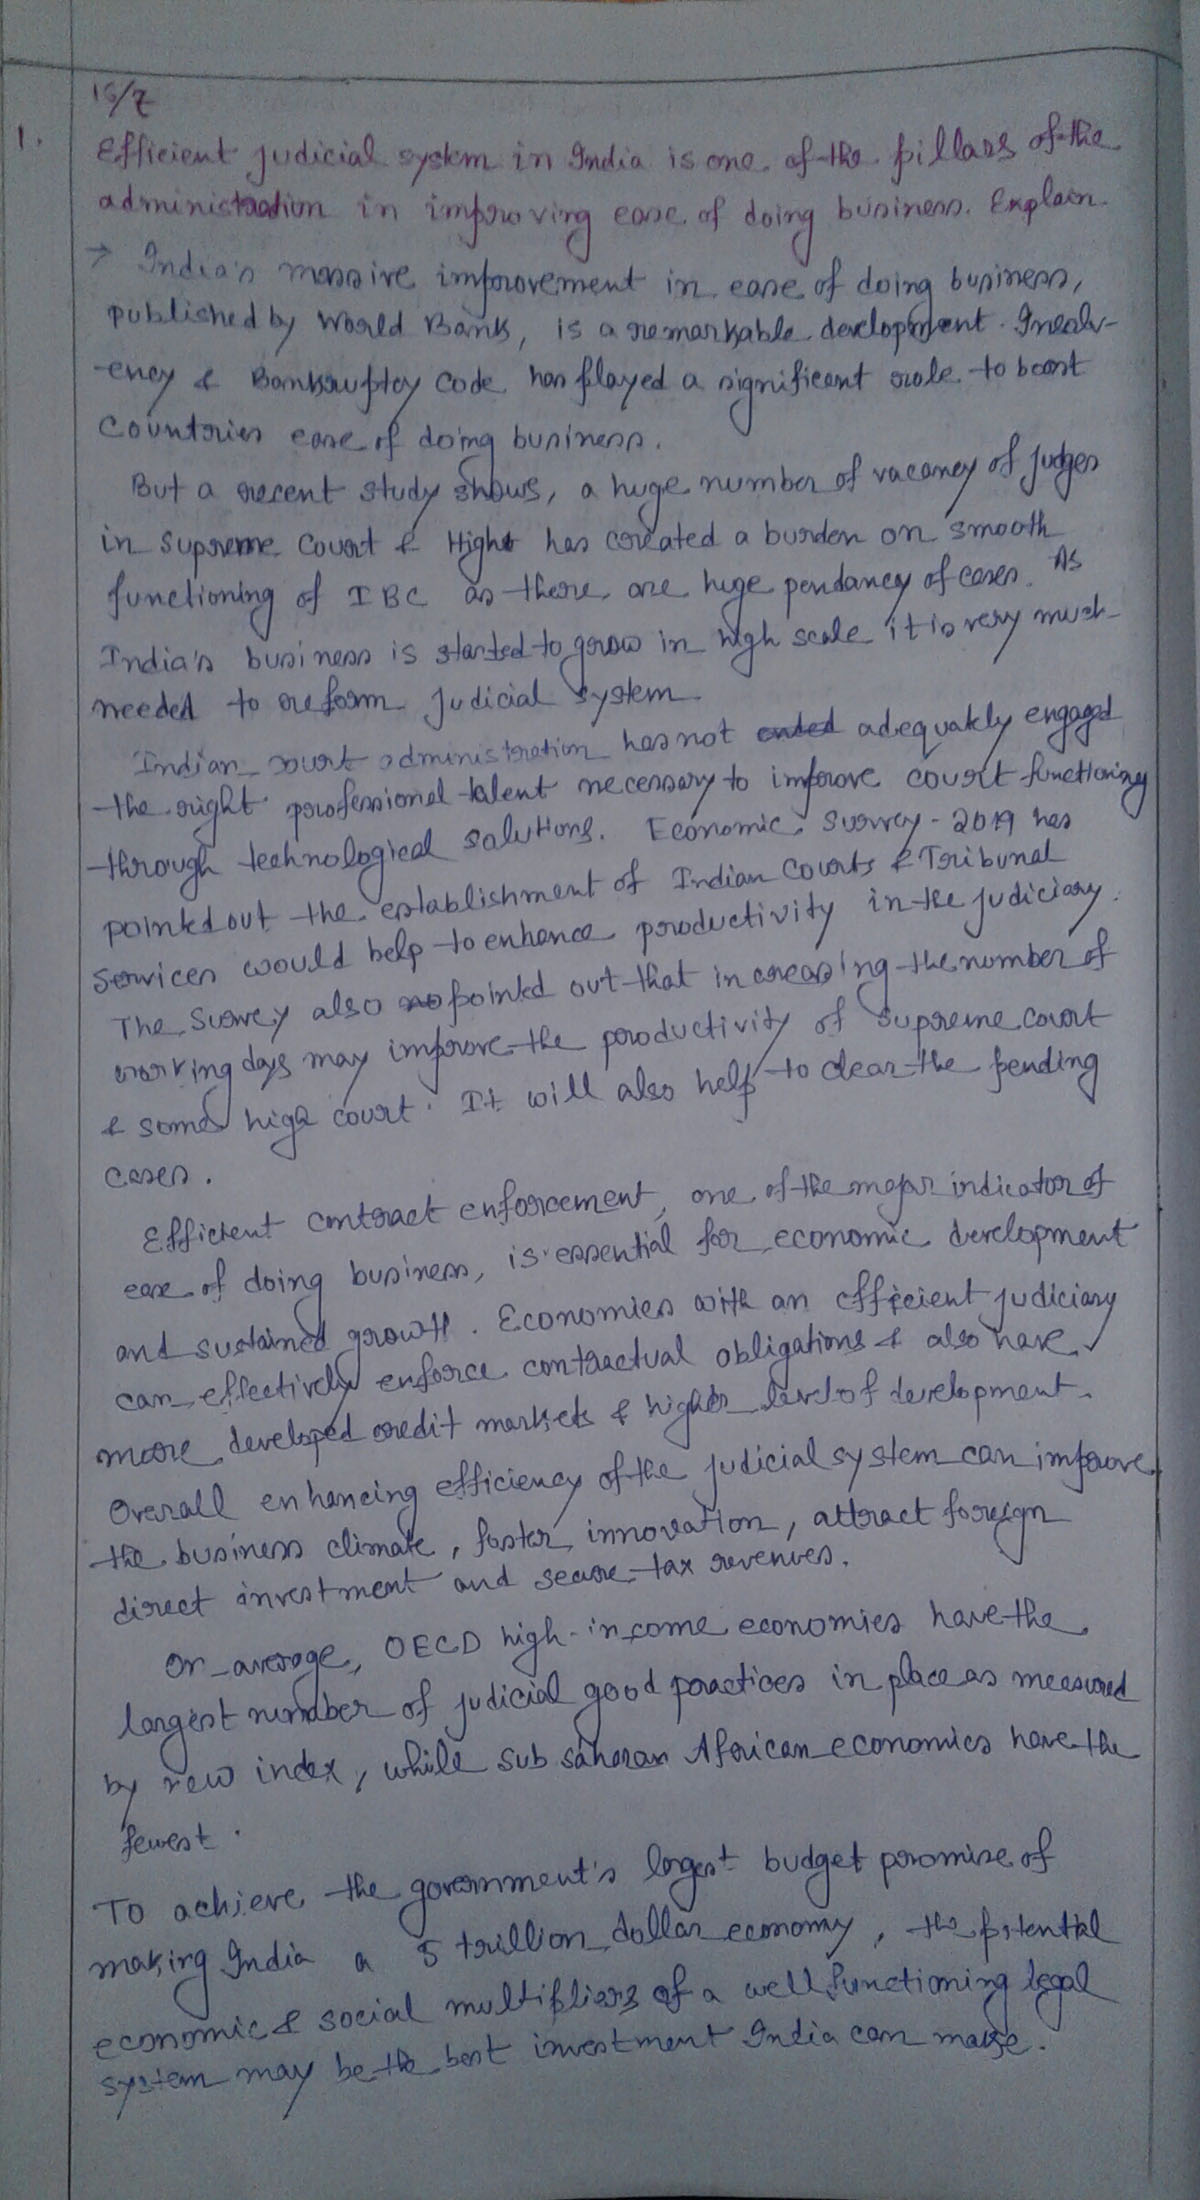 15/7
1. Efficient judicial system in India is one of the pillars of the
administration in improving ease of doing business. Explain.
→ India's massive improvement in ease of doing business,
published by World Bank, is a remarkable development. Insolv-
-ency & Bankruptcy Code has played a significant role to boost
Countries ease of doing business.
But a recent study shows, a huge number of vacancy of judges
in Supreme Court & High has created a burden on smooth
functioning of IBC as there are huge pendancy of cases. As
India's business is started to grow in high scale it is very much
needed to reform judicial system.
Indian court administration has not ended adequately engaged
the right professional talent necessary to improve court functioning
through technological solutions. Economic Survey - 2019 has
pointed out the establishment of Indian Courts & Tribunal
Services would help to enhance productivity in the judiciary.
The Survey also pointed out that increasing the number of
working days may improve the productivity of Supreme court
& some high court. It will also help to clear the pending
cases.
Efficient contract enforcement, one of the major indicator of
ease of doing business, is essential for economic development
and sustained growth. Economies with an efficient judiciary
can effectively enforce contractual obligations & also have
more developed credit markets & higher level of development.
Overall enhancing efficiency of the judicial system can improve
the business climate, foster innovation, attract foreign
direct investment and secure tax revenues.
On average, OECD high-income economies have the
largest number of judicial good practices in place as measured
by new index, while sub saharan African economies have the
fewest.
To achieve the government's largest budget promise of
making India a 5 trillion dollar economy, the potential
economic & social multipliers of a well functioning legal
system may be the best investment India can make.